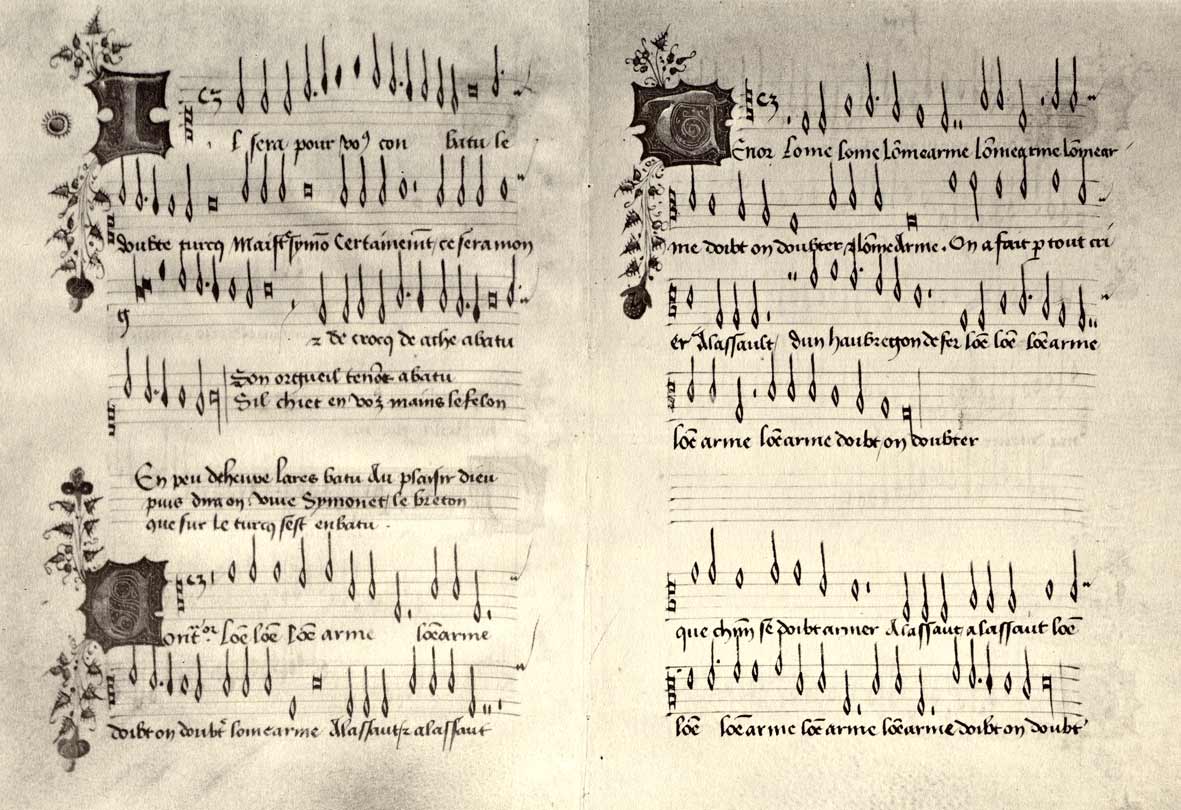 Il sera pour vo⁹ con batu le
doubte turcq Maistre symō Certainemt, ce sera mon
⁊ de crocq de ache abatu
Son orgueil tenōt abatu
Sil chiet en voz mains le felon
En peu deheure lares batu Au plaisir dieu
puis dira on viue Symonet le breton
que sur le turcq sest enbatu .
Contra tor Lōe lōe lōe arme lōe arme
doibt on doubtr lome arme Alassaut ⁊ alassaut
Tenor Lome lome lōmearme lōmearme lōmear
me doibt on doubter, lōme Arme . On a fait ꝑ tout cri
er Alassault, dun haubregon de fer lōe lōe lōe arme
lōe arme lōe arme doibt on doubter
que chm̄ se doibt armer Alassaut, alassaut lōe
lōe lōe arme lōe arme lōe arme doibt on doubt